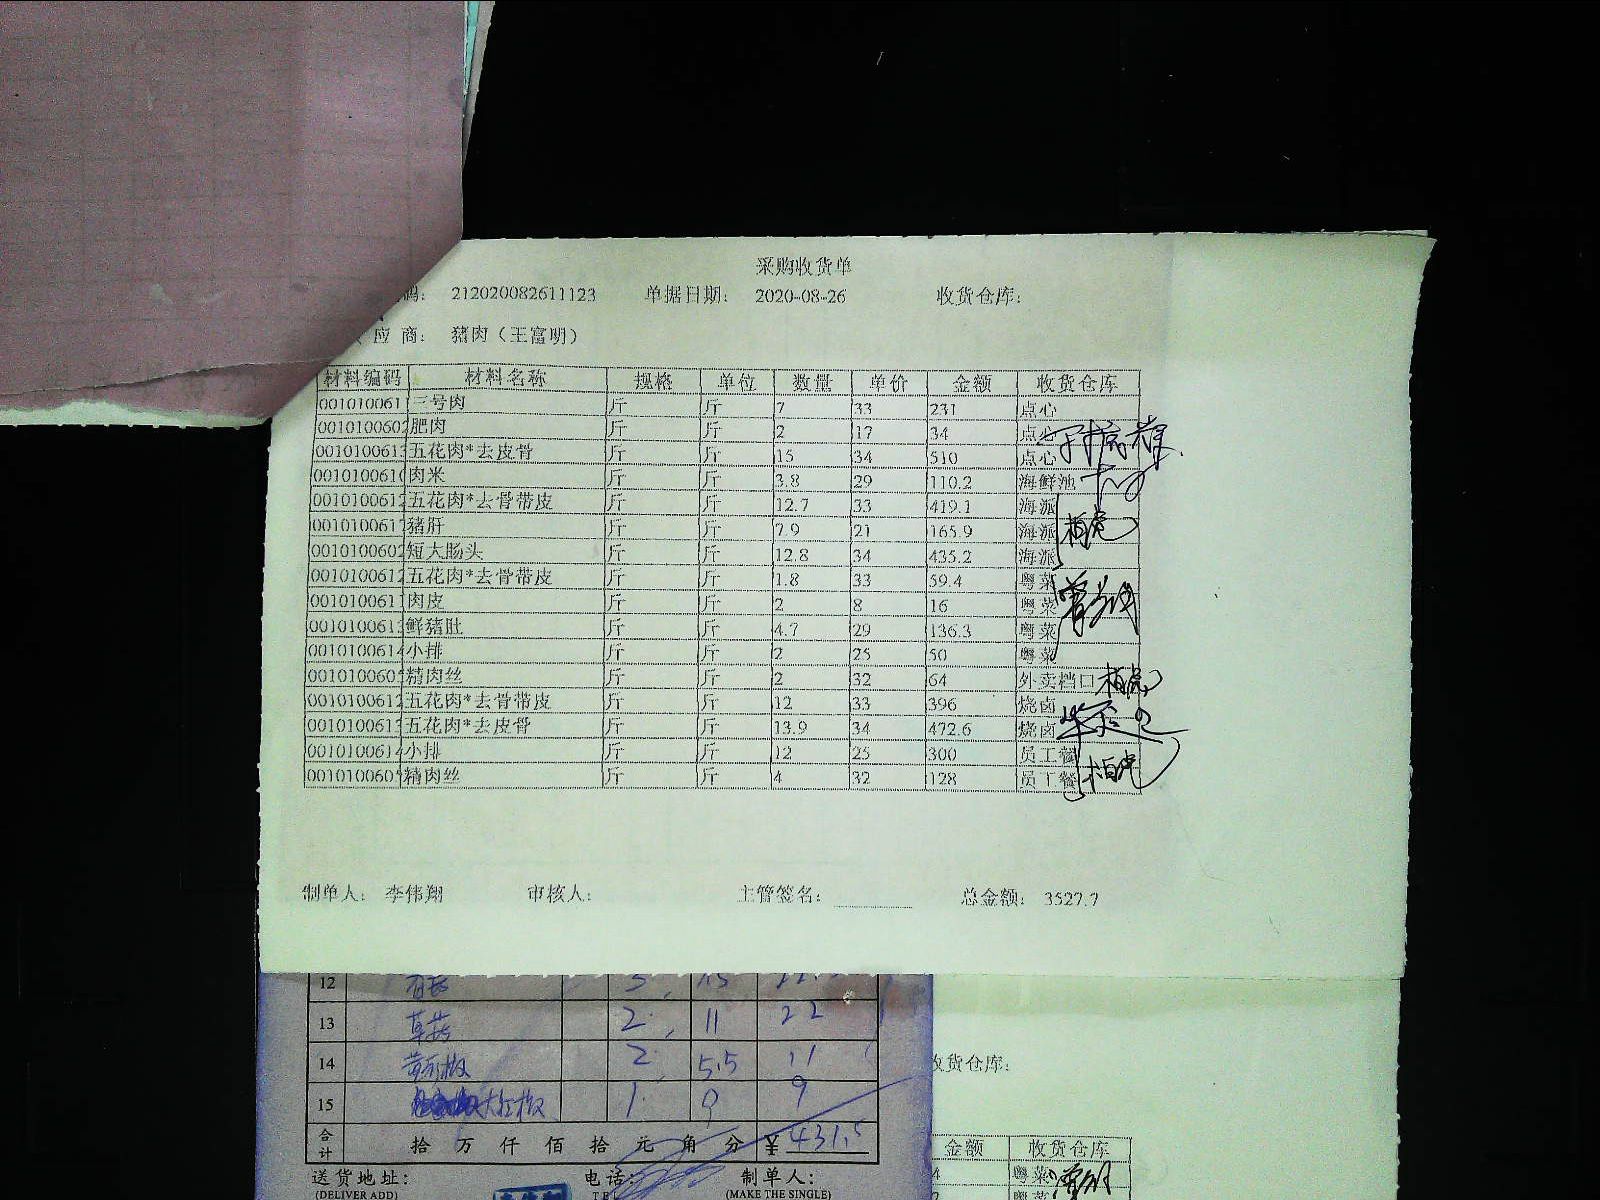 采购收货单
码： 212020082611123 单据日期： 2020-08-26 收货仓库：
应 商： 猪肉（王富明）
材料编码 材料名称 规格 单位 数量 单价 金额 收货仓库
0010100611 三号肉 斤 斤 7 33 231 点心
0010100602 肥肉 斤 斤 2 17 34 点心
0010100613 五花肉*去皮骨 斤 斤 15 34 510 点心
0010100610 肉米 斤 斤 3.8 29 110.2 海鲜池
0010100612 五花肉*去骨带皮 斤 斤 12.7 33 419.1 海派
0010100617 猪肝 斤 斤 7.9 21 165.9 海派
0010100602 短大肠头 斤 斤 12.8 34 435.2 海派
0010100612 五花肉*去骨带皮 斤 斤 1.8 33 59.4 粤菜
0010100611 肉皮 斤 斤 2 8 16 粤菜
0010100613 鲜猪肚 斤 斤 4.7 29 136.3 粤菜
0010100614 小排 斤 斤 2 25 50 粤菜
001010060 精肉丝 斤 斤 2 32 64 外卖档口
0010100612 五花肉*去骨带皮 斤 斤 12 33 396 烧卤
0010100613 五花肉*去皮骨 斤 斤 13.9 34 472.6 烧卤
0010100614 小排 斤 斤 12 25 300 员工餐
001010060 精肉丝 斤 斤 4 32 128 员工餐
制单人： 李伟翔 审核人： 主管签名： 总金额： 3527.7
12
13 草菇 2 11 22
14 2 5.5 11
15 大红椒 1 9 9
合计 拾 万 仟 佰 拾 元 角 分 ¥ 431.5
送货地址： 电话： 制单人：
(DELIVER ADD) TEL (MAKE THE SINGLE)
收货仓库：
金额 收货仓库
4 粤菜
粤菜